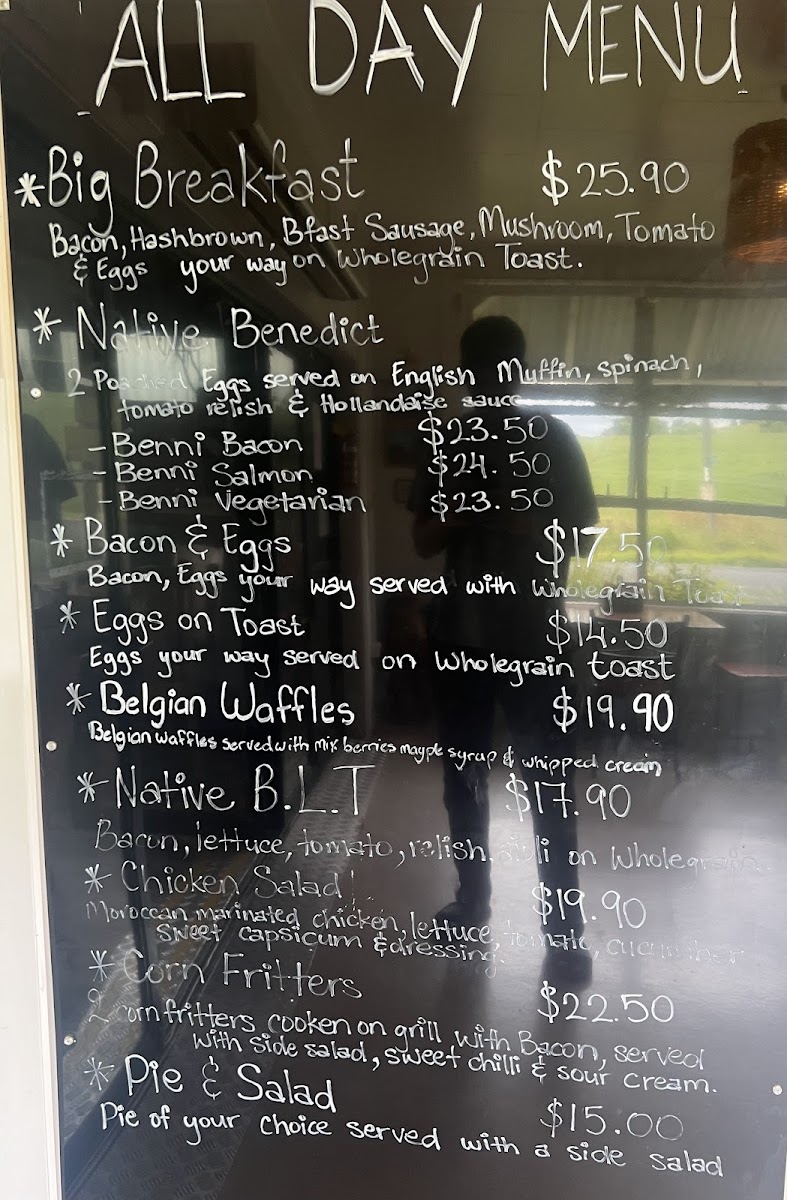 ALL DAY MENU
* Big Breakfast $25.90
Bacon, Hashbrown, Bfast Sausage, Mushroom, Tomato
& Eggs your way on Wholegrain Toast.
* Native Benedict
2 Poached Eggs served on English Muffin, spinach,
tomato relish & Hollandaise sauce
- Benni Bacon $23.50
- Benni Salmon $24.50
- Benni Vegetarian $23.50
* Bacon & Eggs $17.50
Bacon, Eggs your way served with Wholegrain Toast
* Eggs on Toast $14.50
Eggs your way served on Wholegrain toast
* Belgian Waffles $19.90
Belgian waffles served with mix berries mayple syrup & whipped cream
* Native B.L.T $17.90
Bacon, lettuce, tomato, relish, aioli on Wholegrain
* Chicken Salad $19.90
Moroccan marinated chicken, lettuce, tomato, cucumber
sweet capsicum & dressing.
* Corn Fritters $22.50
2 Corn fritters cooken on grill with Bacon, served
with side salad, sweet chilli & sour cream.
* Pie & Salad $15.00
Pie of your choice served with a side salad